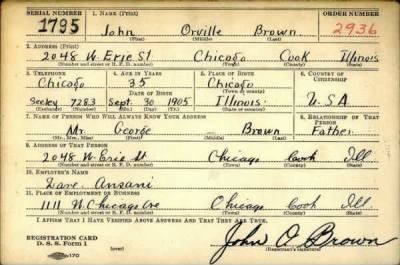 SERIAL NUMBER 1. NAME (Print) ORDER NUMBER
1795 John Orville Brown 2936
(First) (Middle) (Last)
2. ADDRESS (Print)
2048 W. Erie St Chicago Cook Illinois
(Number and street or R. F. D. number) (Town) (County) (State)
3. TELEPHONE 4. AGE IN YEARS 5. PLACE OF BIRTH 6. COUNTRY OF CITIZENSHIP
Chicago 35 Chicago
DATE OF BIRTH
Seeley 7283 Sept. 30 1905 Illinois U.S.A
7. NAME OF PERSON WHO WILL ALWAYS KNOW YOUR ADDRESS 8. RELATIONSHIP OF THAT PERSON
Mr. George Brown Father
(Mr., Mrs., Miss) (First) (Middle) (Last)
9. ADDRESS OF THAT PERSON
2048 W. Erie St Chicago Cook Ill
(Number and street or R. F. D. number) (Town) (County) (State)
10. EMPLOYER'S NAME
Dave Ansani
11. PLACE OF EMPLOYMENT OR BUSINESS
1111 W. Chicago Ave Chicago Cook Ill
(Number and street or R. F. D. number) (Town) (County) (State)
I AFFIRM THAT I HAVE VERIFIED ABOVE ANSWERS AND THAT THEY ARE TRUE.
REGISTRATION CARD
D. S. S. Form 1 (over) John O Brown
(Registrant's signature)